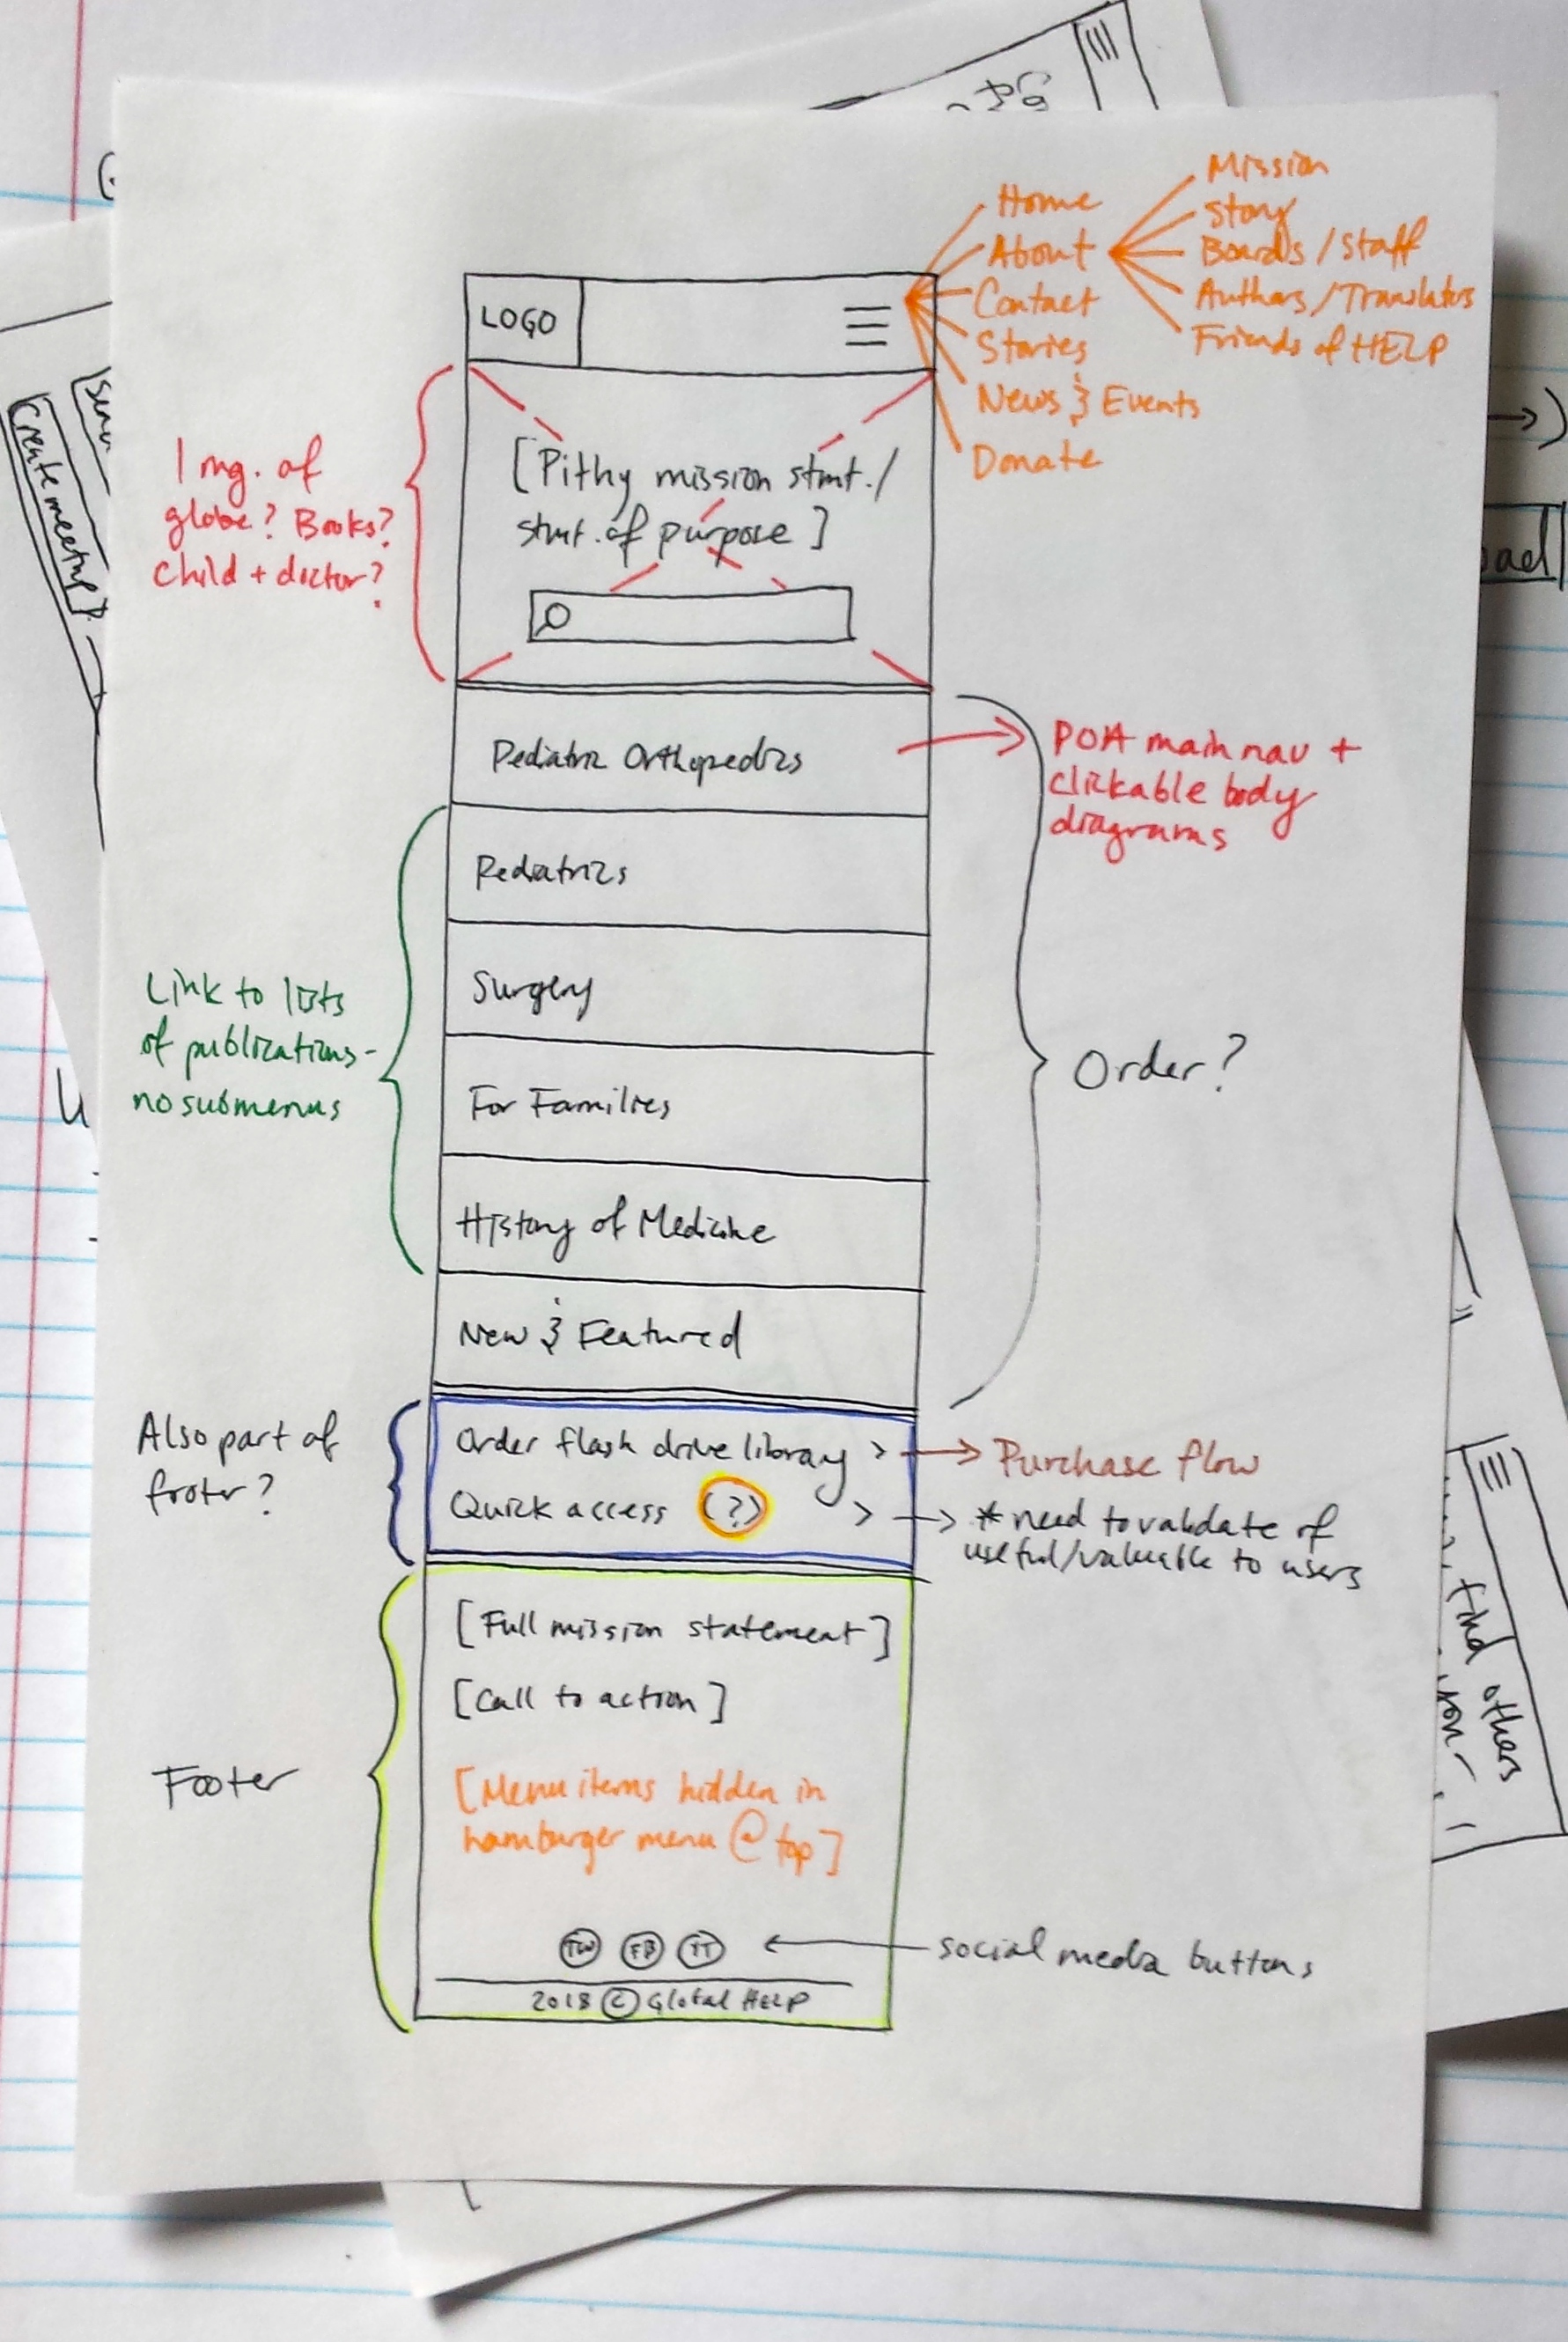 Home
About
Contact
Stories
News & Events
Donate
Mission
Story
Boards / Staff
Authors / Translators
Friends of HELP
LOGO
[Pithy mission stmt. /
stmt. of purpose ]
Img. of
globe? Books?
Child + doctor?
Pediatric Orthopedics
POA main nav +
clickable body
diagrams
Pediatrics
Surgery
For Families
History of Medicine
New & Featured
Link to lists
of publications -
no submenus
Order?
Order flash drive library >
Quick access (?) >
Also part of
footer?
Purchase flow
* need to validate if
useful/valuable to users
[Full mission statement]
[Call to action]
[Menu items hidden in
hamburger menu @ top]
Footer
TW FB YT
social media buttons
2018 © Global HELP
Create meetup
oad
find others